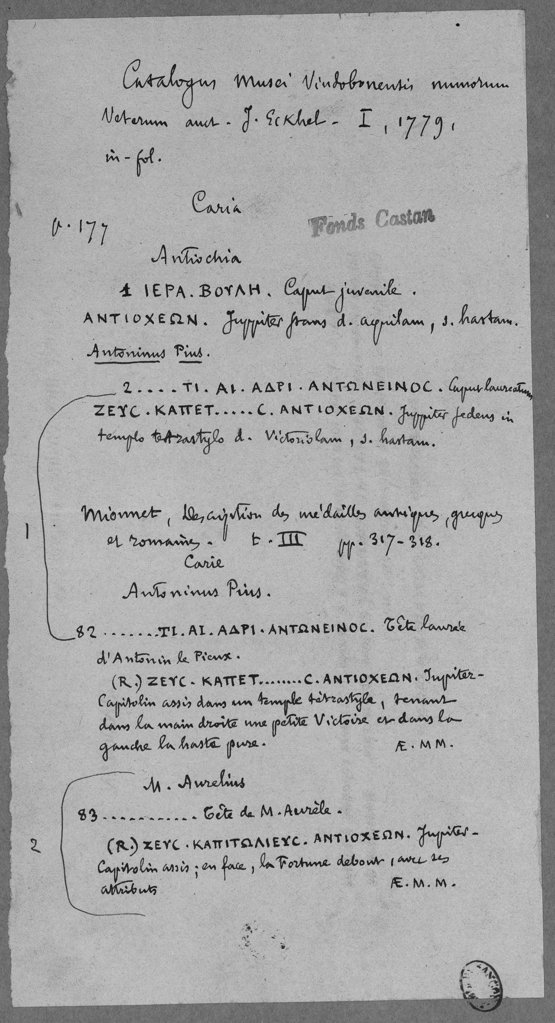 Catalogus Musei Vindobonensis numorum
Veterum auct. J. Eckhel - I, 1779,
in-fol.
Caria
p. 177
Fonds Castan
Antiochia
1 ΙΕΡΑ. ΒΟΥΛΗ. Caput juvenile.
ΑΝΤΙΟΧΕΩΝ. Juppiter stans d. aquilam, s. hastam.
Antoninus Pius.
2.....ΤΙ. ΑΙ. ΑΔΡΙ. ΑΝΤΩΝΕΙΝΟC. Caput laureatum
ΖΕΥC. ΚΑΠΕΤ.....C. ΑΝΤΙΟΧΕΩΝ. Juppiter sedens in
templo tetrastylo d. Victoriolam, s. hastam.
1
Mionnet, Description des médailles antiques, grecques
et romaines. t. III pp. 317-318.
Carie
Antoninus Pius.
82.......ΤΙ. ΑΙ. ΑΔΡΙ. ΑΝΤΩΝΕΙΝΟC. Tête laurée
d'Antonin le Pieux.
(R.) ΖΕΥC. ΚΑΠΕΤ........C. ΑΝΤΙΟΧΕΩΝ. Jupiter-
Capitolin assis dans un temple tétrastyle, tenant
dans la main droite une petite Victoire et dans la
gauche la haste pure. Æ. MM.
M. Aurelius
83........... Tête de M. Aurèle.
2
(R.) ΖΕΥC. ΚΑΠΙΤΩΛΙΕΥC. ΑΝΤΙΟΧΕΩΝ. Jupiter-
Capitolin assis; en face, la Fortune debout, avec ses
attributs Æ. M. M.